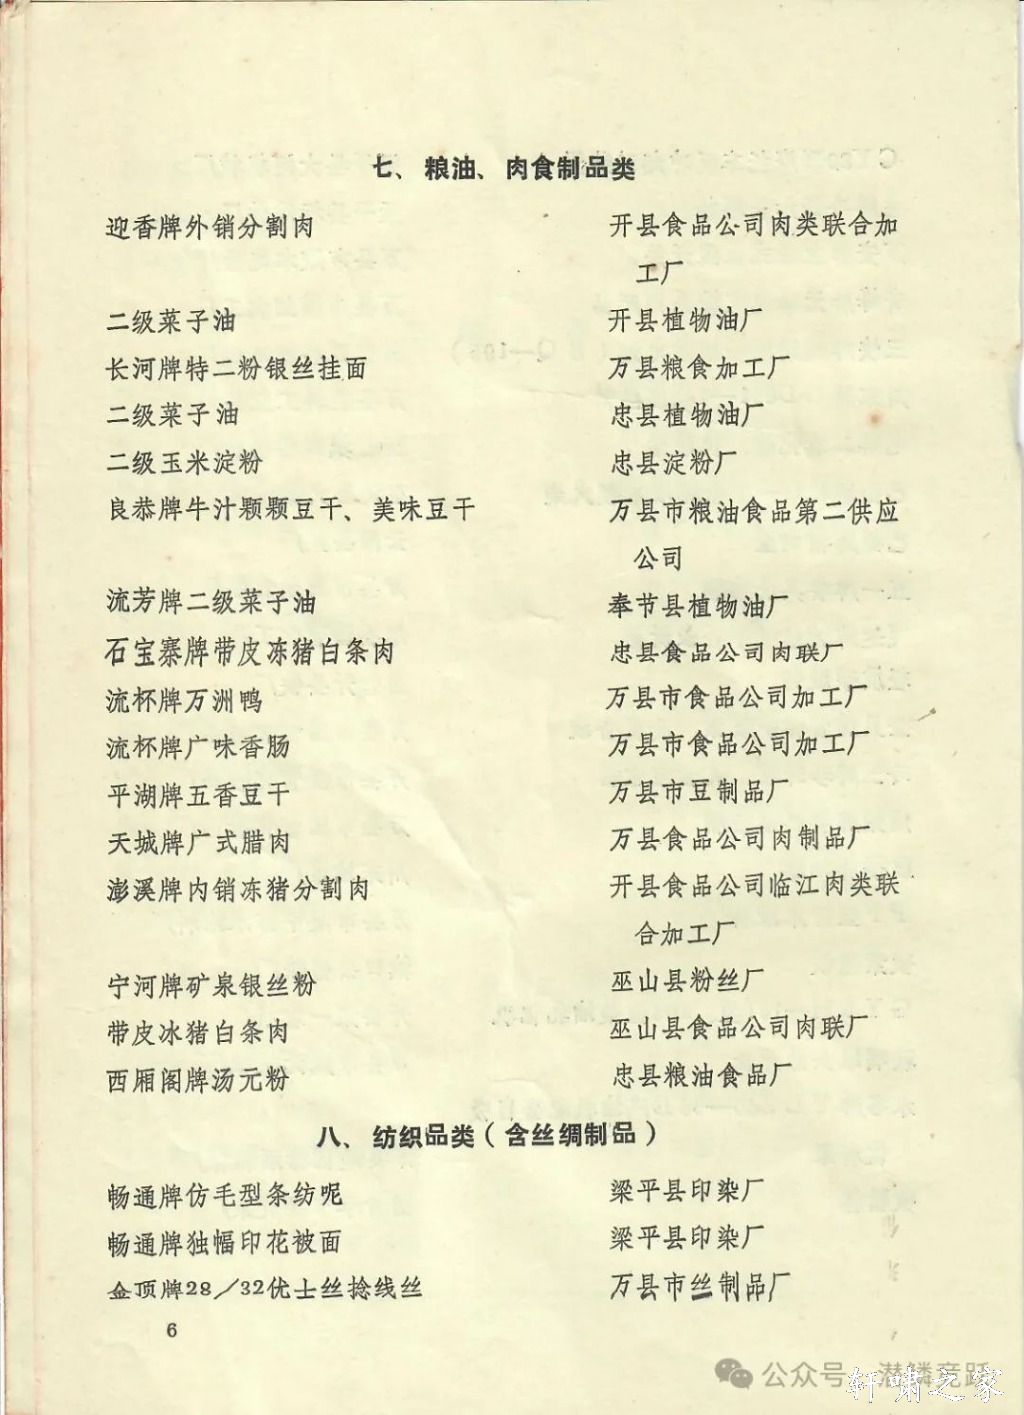 七、粮油、肉食制品类
迎香牌外销分割肉 开县食品公司肉类联合加
工厂
二级菜子油 开县植物油厂
长河牌特二粉银丝挂面 万县粮食加工厂
二级菜子油 忠县植物油厂
二级玉米淀粉 忠县淀粉厂
良恭牌牛汁颗颗豆干、美味豆干 万县市粮油食品第二供应
公司
流芳牌二级菜子油 奉节县植物油厂
石宝寨牌带皮冻猪白条肉 忠县食品公司肉联厂
流杯牌万洲鸭 万县市食品公司加工厂
流杯牌广味香肠 万县市食品公司加工厂
平湖牌五香豆干 万县市豆制品厂
天城牌广式腊肉 万县食品公司肉制品厂
澎溪牌内销冻猪分割肉 开县食品公司临江肉类联
合加工厂
宁河牌矿泉银丝粉 巫山县粉丝厂
带皮冰猪白条肉 巫山县食品公司肉联厂
西厢阁牌汤元粉 忠县粮油食品厂
八、纺织品类(含丝绸制品)
畅通牌仿毛型条纺呢 梁平县印染厂
畅通牌独幅印花被面 梁平县印染厂
金顶牌28/32优士丝捻线丝 万县市丝制品厂
6
公众号·潜鳞竞跃
轩啸之家